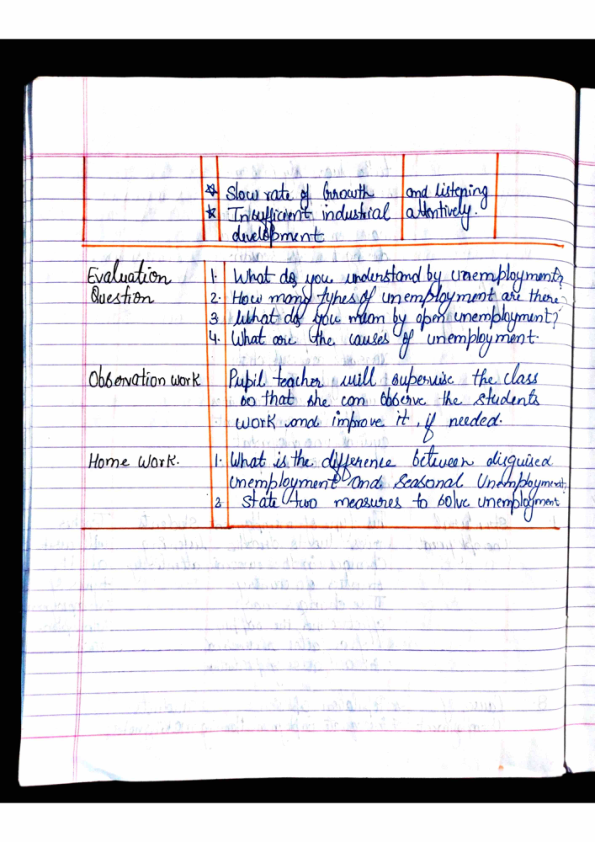 ☆ Slow rate of Growth and listening
☆ Insufficient industrial attentively.
development
Evaluation 1. What do you understand by unemployment?
Question 2. How many types of unemployment are there?
3 What do you mean by open unemployment?
4. What are the causes of unemployment.
Observation work Pupil teacher will supervise the class
so that she can observe the students
work and improve it, if needed.
Home Work. 1. What is the difference between disguised
unemployment and seasonal Unemployment.
2 State two measures to solve unemployment